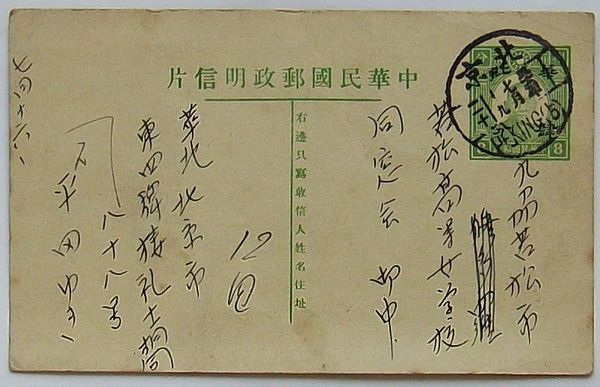 中華民國郵政明信片
右邊只寫收信人姓名住址
北京
PEKING
8
九州若松市
若松高等女学校
同窓会 御中
12回
華北北京市
東四牌楼礼士胡同
八十八号
平田